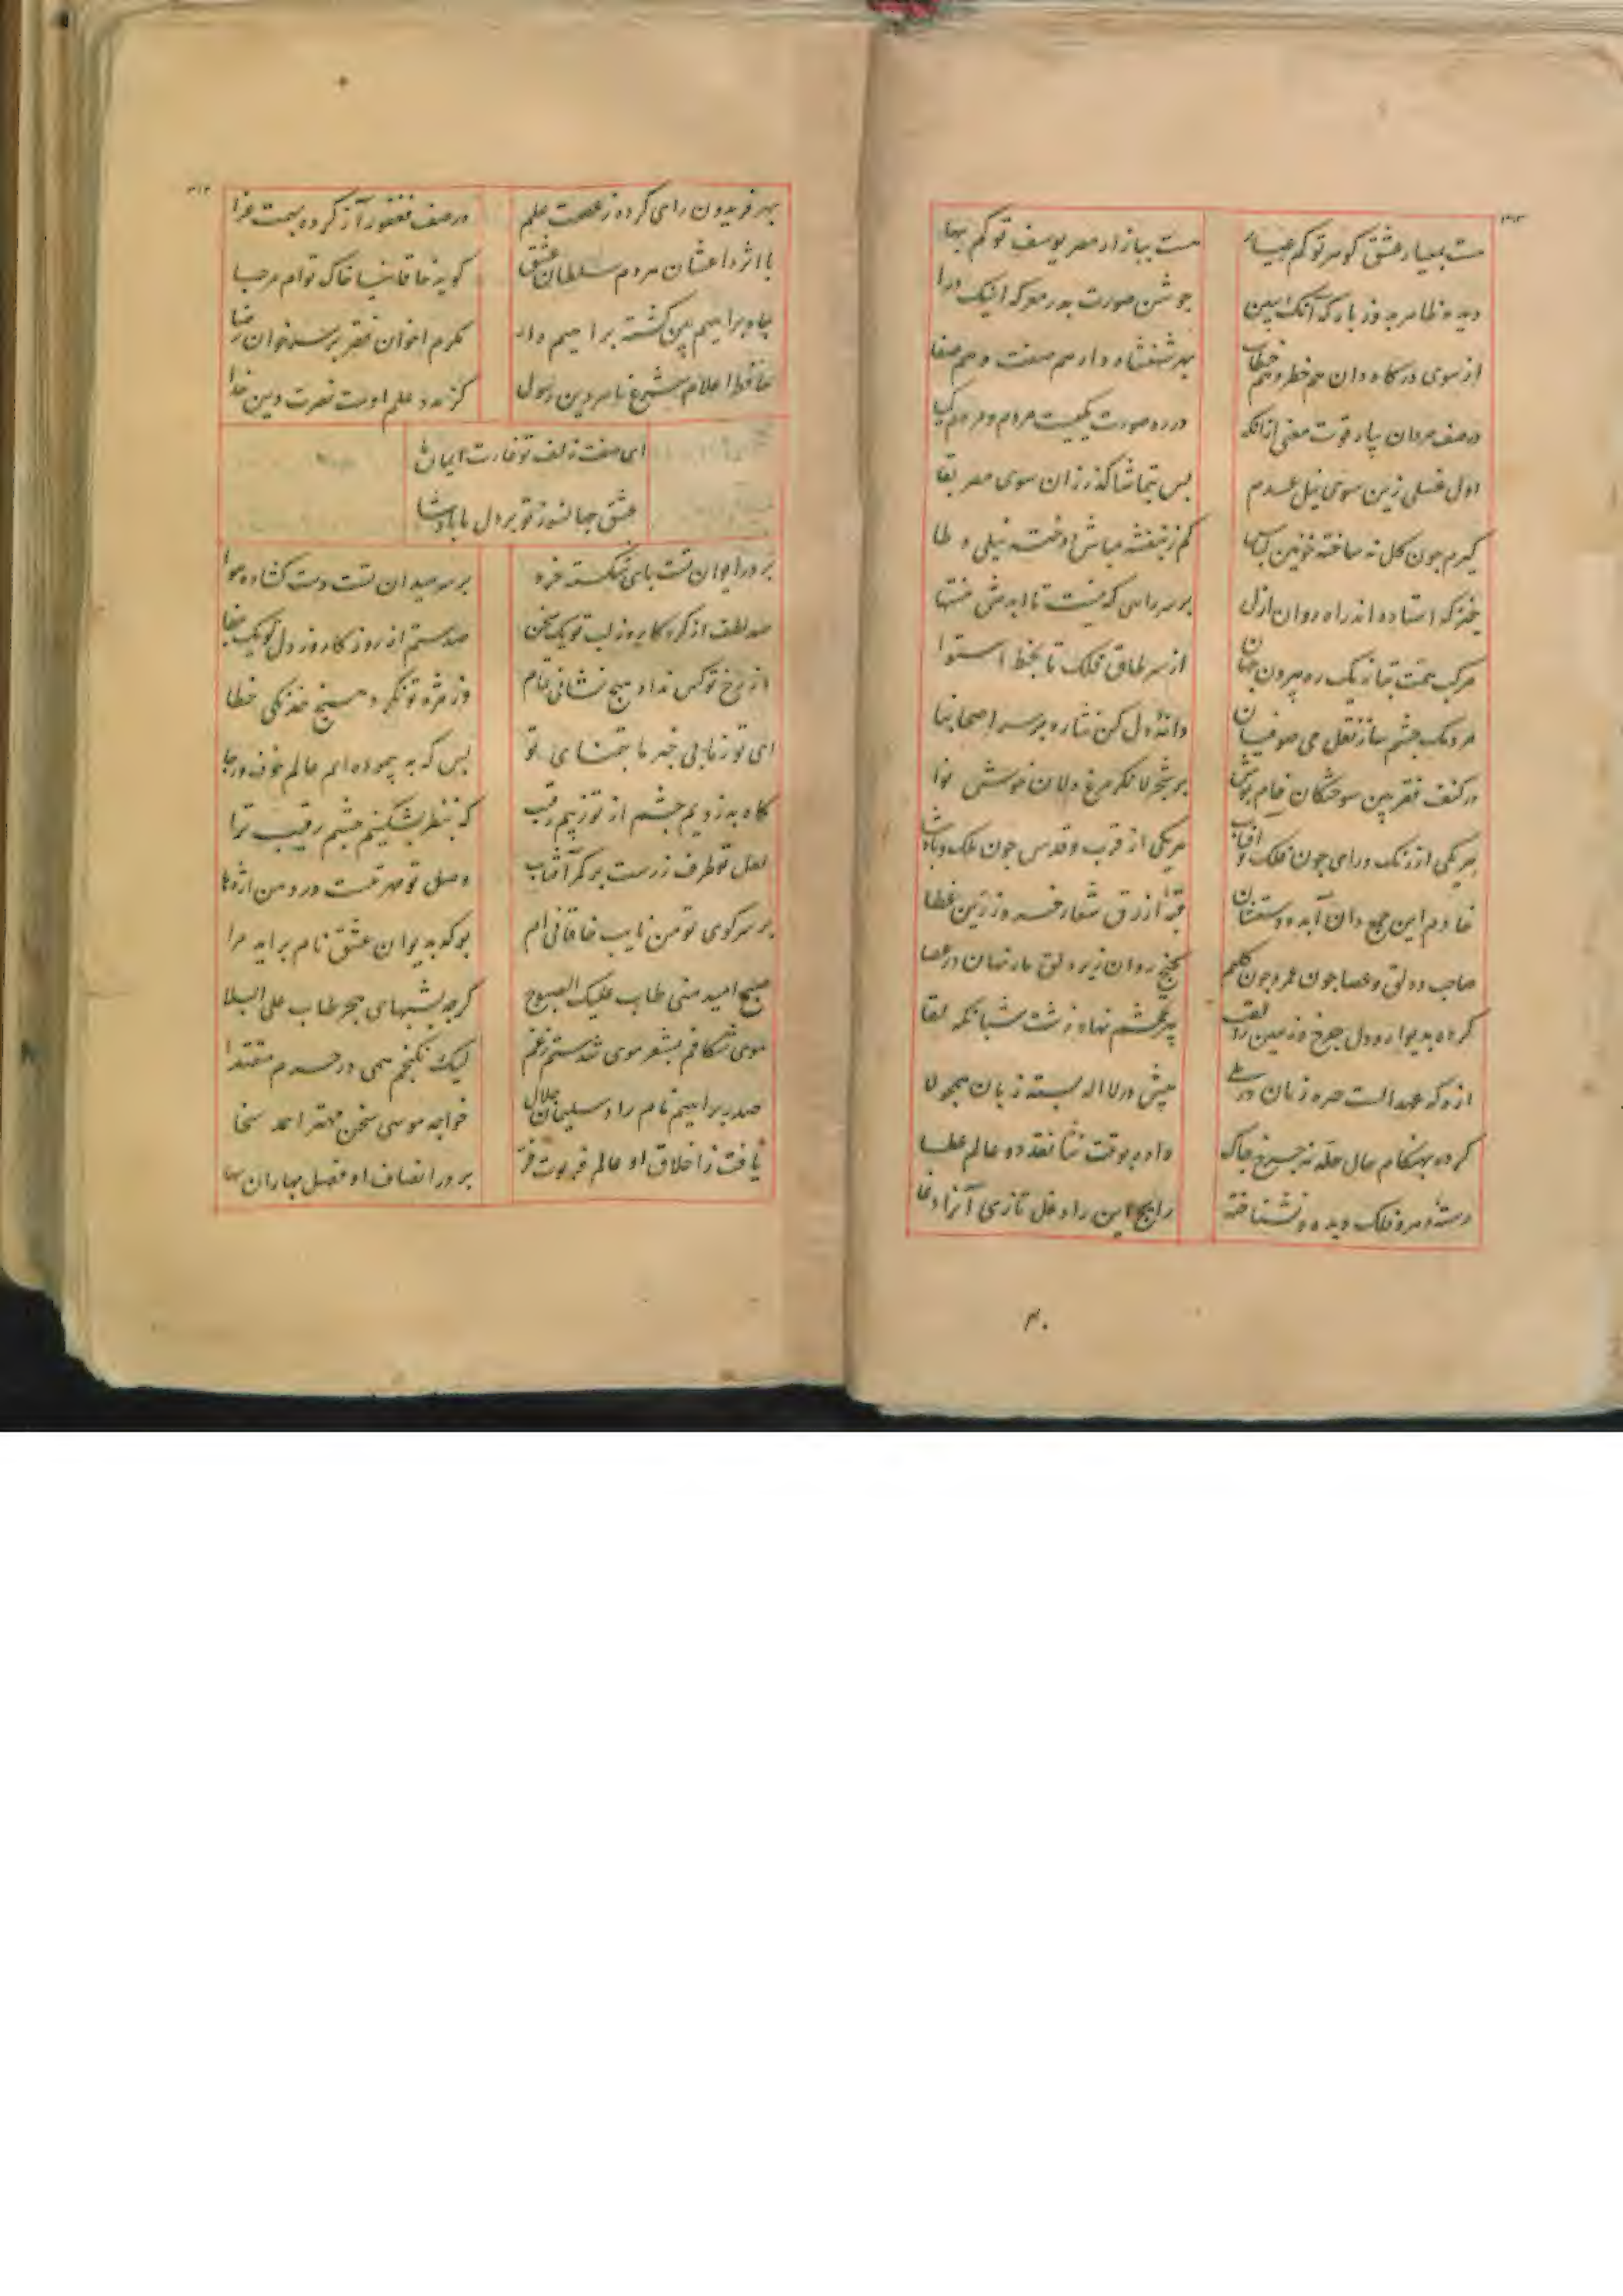 هست بمعیار عشق کوهر تو کم عیار هست ببازار مصر یوسف تو کم بها
دیده ظاهر بدوز بارکه آنک ببین جوشن صورت بدر معرکه اینک درا
از سوی درکاه دان هم خطر و هم خطاب بر شهنشاه دار هم صفت و هم صفا
در صف مردان بیار قوت معنی ازانکه در ره صورت یکیست مردم و مردم کیا
اول غسلی زین سوی نیل عدم بس بتماشا کذر زان سوی مصر بقا
کیرم چون کل نه ساخته خونین لباس کم ز بنفشه مباش دوخته نیلی وطا
خیز که استاده اند راه روان ازل بر سر راهی که نیست تا ابدش منتها
مرکب همت بتاز یک ره بیرون جهان از سر طاق فلک تا بخط استوا
مردمک چشم ساز نقل می صوفیان دانه دل کن نثار بر سر اصحابنا
در کنف فقر بین سوختکان خام پوش بر شجر لا نکر مرغ دلان خوش نوا
هر یکی از رنک و رای چون فلک و آفتاب هر یکی از قرب و قدس چون ملک و پادشا
خادم این جمع دان آبده دستشان قبه ازرق شعار خسرو زرین غطا
صاحب دلق و عصا چون خضر و چون کلیم کنج روان زیر دلق مار نهان در عصا
کرده بدیوار دل چرخ و زمین را لقب پیر نهاد زشت شبانکه لقا
از که عهد الست زبان در بلی پیش در لا اله بسته زبان همچو لا
کرده بهنکام حال حله نه چرخ چاک داده بوقت نثا نقد دو عالم عطا
رسته دهر و فلک دیده و نشناخته رایج این را دغل تازی آنرا دغا
بهر فریدون رای کرده ز عصمت علم در صف فغفور آز کرده بهمت غزا
با اثر داغشان مردم سلطان عشق کوید خاقانیا خاک توام مرحبا
مکرم اخوان فقر بر سر خوان رضا
حافظ اعلام شرع ناصر دین رسول کز مدد علم اوست نصرت دین خدا
ای صفت زلف تو غارت ایمان ما
عشق جهانسوز تو بر دل ما بادشا
بر در ایوان تست بای شکسته خرد بر سر میدان تست دست کشاده هوا
صد لطف از کردکار وز لب تو یک سخن صد ستم از روزکار وز دل تو یک جفا
از رخ تو کس نداد هیچ نشانی تمام وز مژه تو نکرد هیچ خدنکی خطا
ای تو ز ما بی خبر ما بتمنای تو بس که به پیموده ایم عالم خوف و رجا
کاه بدزدیم چشم از تو ز بیم رقیب که بنظر بشکنیم چشم رقیب ترا
لعل تو طرف زرست بر کمر آفتاب وصل تو مهر تست در دهن اژدها
بر سر کوی تو من نایب خاقانی ام بو که بدیوان عشق نام براید مرا
صبح امید منی طاب علیک الصبوح کرچه بشبهای هجر طاب علی البلا
موی شکافم بشعر موی شدستم ز غم لیک نکنجم همی در حرم مقتدا
صدر براهیم نام راد سلیمان جلال خواجه موسی سخن مهتر احمد سخا
یافت ز اخلاق او عالم فرتوت فر بر در انصاف او فصل بهاران بها